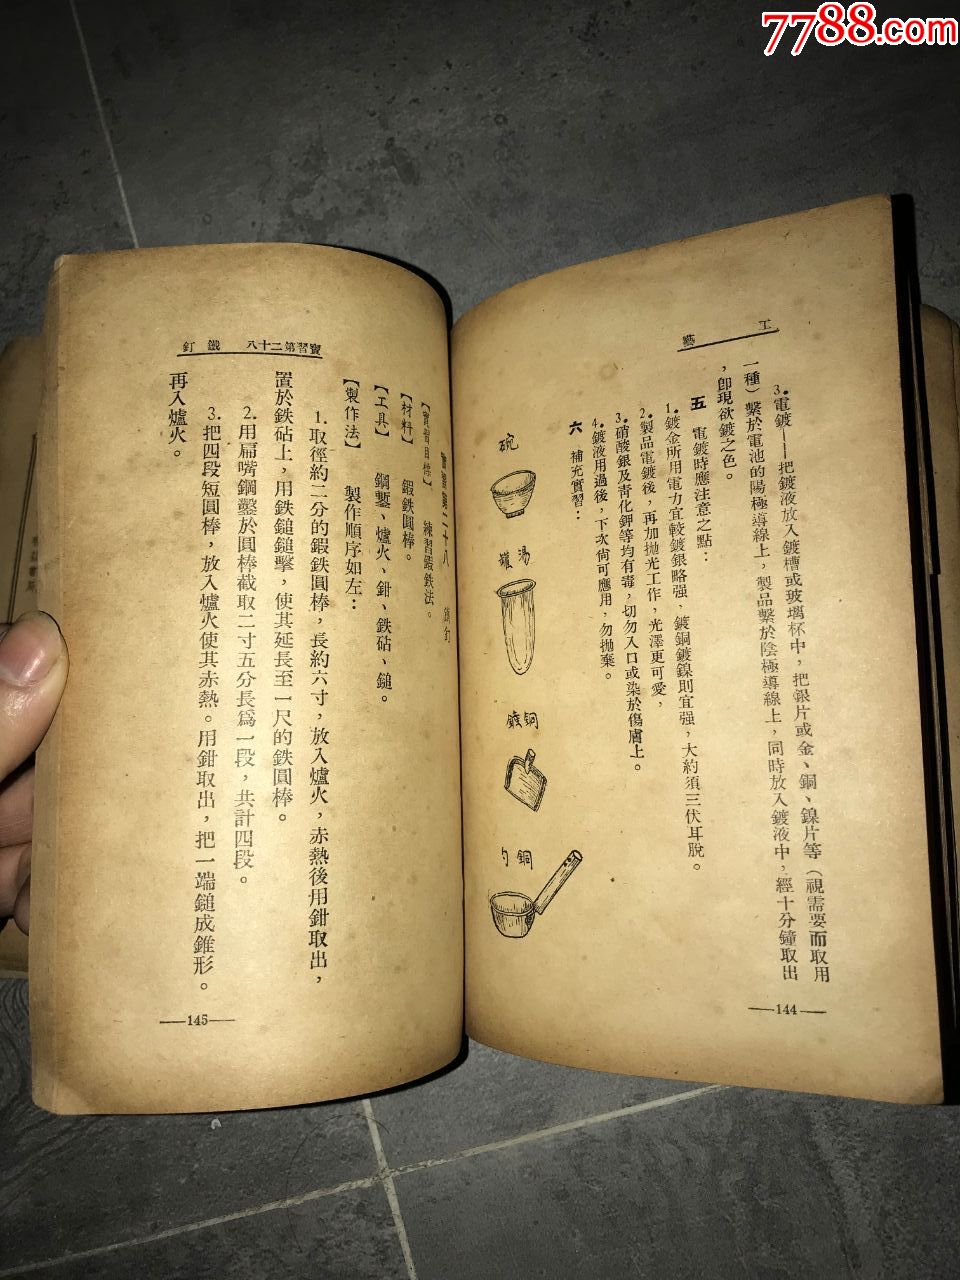 7788.com
工藝
3.電鍍——把鍍液放入鍍槽或玻璃杯中，把銀片或金、銅、鎳片等（視需要而取用
一種）繫於電池的陽極導線上，製品繫於陰極導線上，同時放入鍍液中，經十分鐘取出
，卽現欲鍍之色。
五　電鍍時應注意之點：
1.鍍金所用電力宜較鍍銀略强，鍍銅鍍鎳則宜强，大約須三伏耳脫。
2.製品電鍍後，再加拋光工作，光澤更可愛，
3.硝酸銀及靑化鉀等均有毒，切勿入口或染於傷膚上。
4.鍍液用過後，下次尙可應用，勿拋棄。
六　補充實習：
碗
湯罐
銅鍍
銅勺
—144—
實習第二十八　鐵釘
實習第二十八　鐵釘
【實習目標】　練習鍛鉄法。
【材料】　鍛鉄圓棒。
【工具】　鋼鏨、爐火、鉗、鉄砧、鎚。
【製作法】　製作順序如左：
1.取徑約二分的鍛鉄圓棒，長約六寸，放入爐火，赤熱後用鉗取出，
置於鉄砧上，用鉄鎚鎚擊，使其延長至一尺的鉄圓棒。
2.用扁嘴鋼鑿於圓棒截取二寸五分長爲一段，共計四段。
3.把四段短圓棒，放入爐火使其赤熱。用鉗取出，把一端鎚成錐形。
再入爐火。
—145—